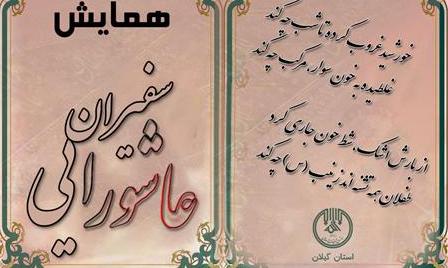 همایش
سفیران
عاشورایی
خورشید غروب کرده تا شب چه کند
غلطیده به خون سوار، مرکب چه کند
از بارش اشک، شط خون جاری کرد
طفلان همه تشنه‌اند زینب (س) چه کند
استان گیلان